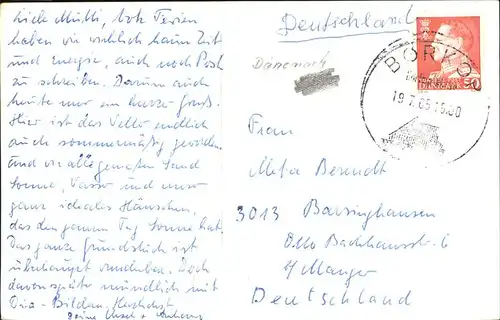 Liebe Mutti, trotz Ferien
haben wir wirklich kaum Zeit
und Energie, auch noch Post
zu schreiben. Darum auch
heute nur ein kurzer Gruß.
Hier ist das Wetter endlich
auch sommermäßig geworden
und wir alle genießen Sand
Sonne, Wasser und unser
ganz ideales Häuschen,
das den ganzen Tag Sonne hat.
Das ganze Grundstück ist
überhaupt wunderbar. Doch
davon später mündlich mit
Dia-Bildern. Herzlichst
Deine
Deutschland
Dänemark
BORDOP
19.7.65.15.30
50
Frau
Meta Berendt
3013 Barsinghausen
Otto Backhausstr. 6
b/ Manger
Deutschland